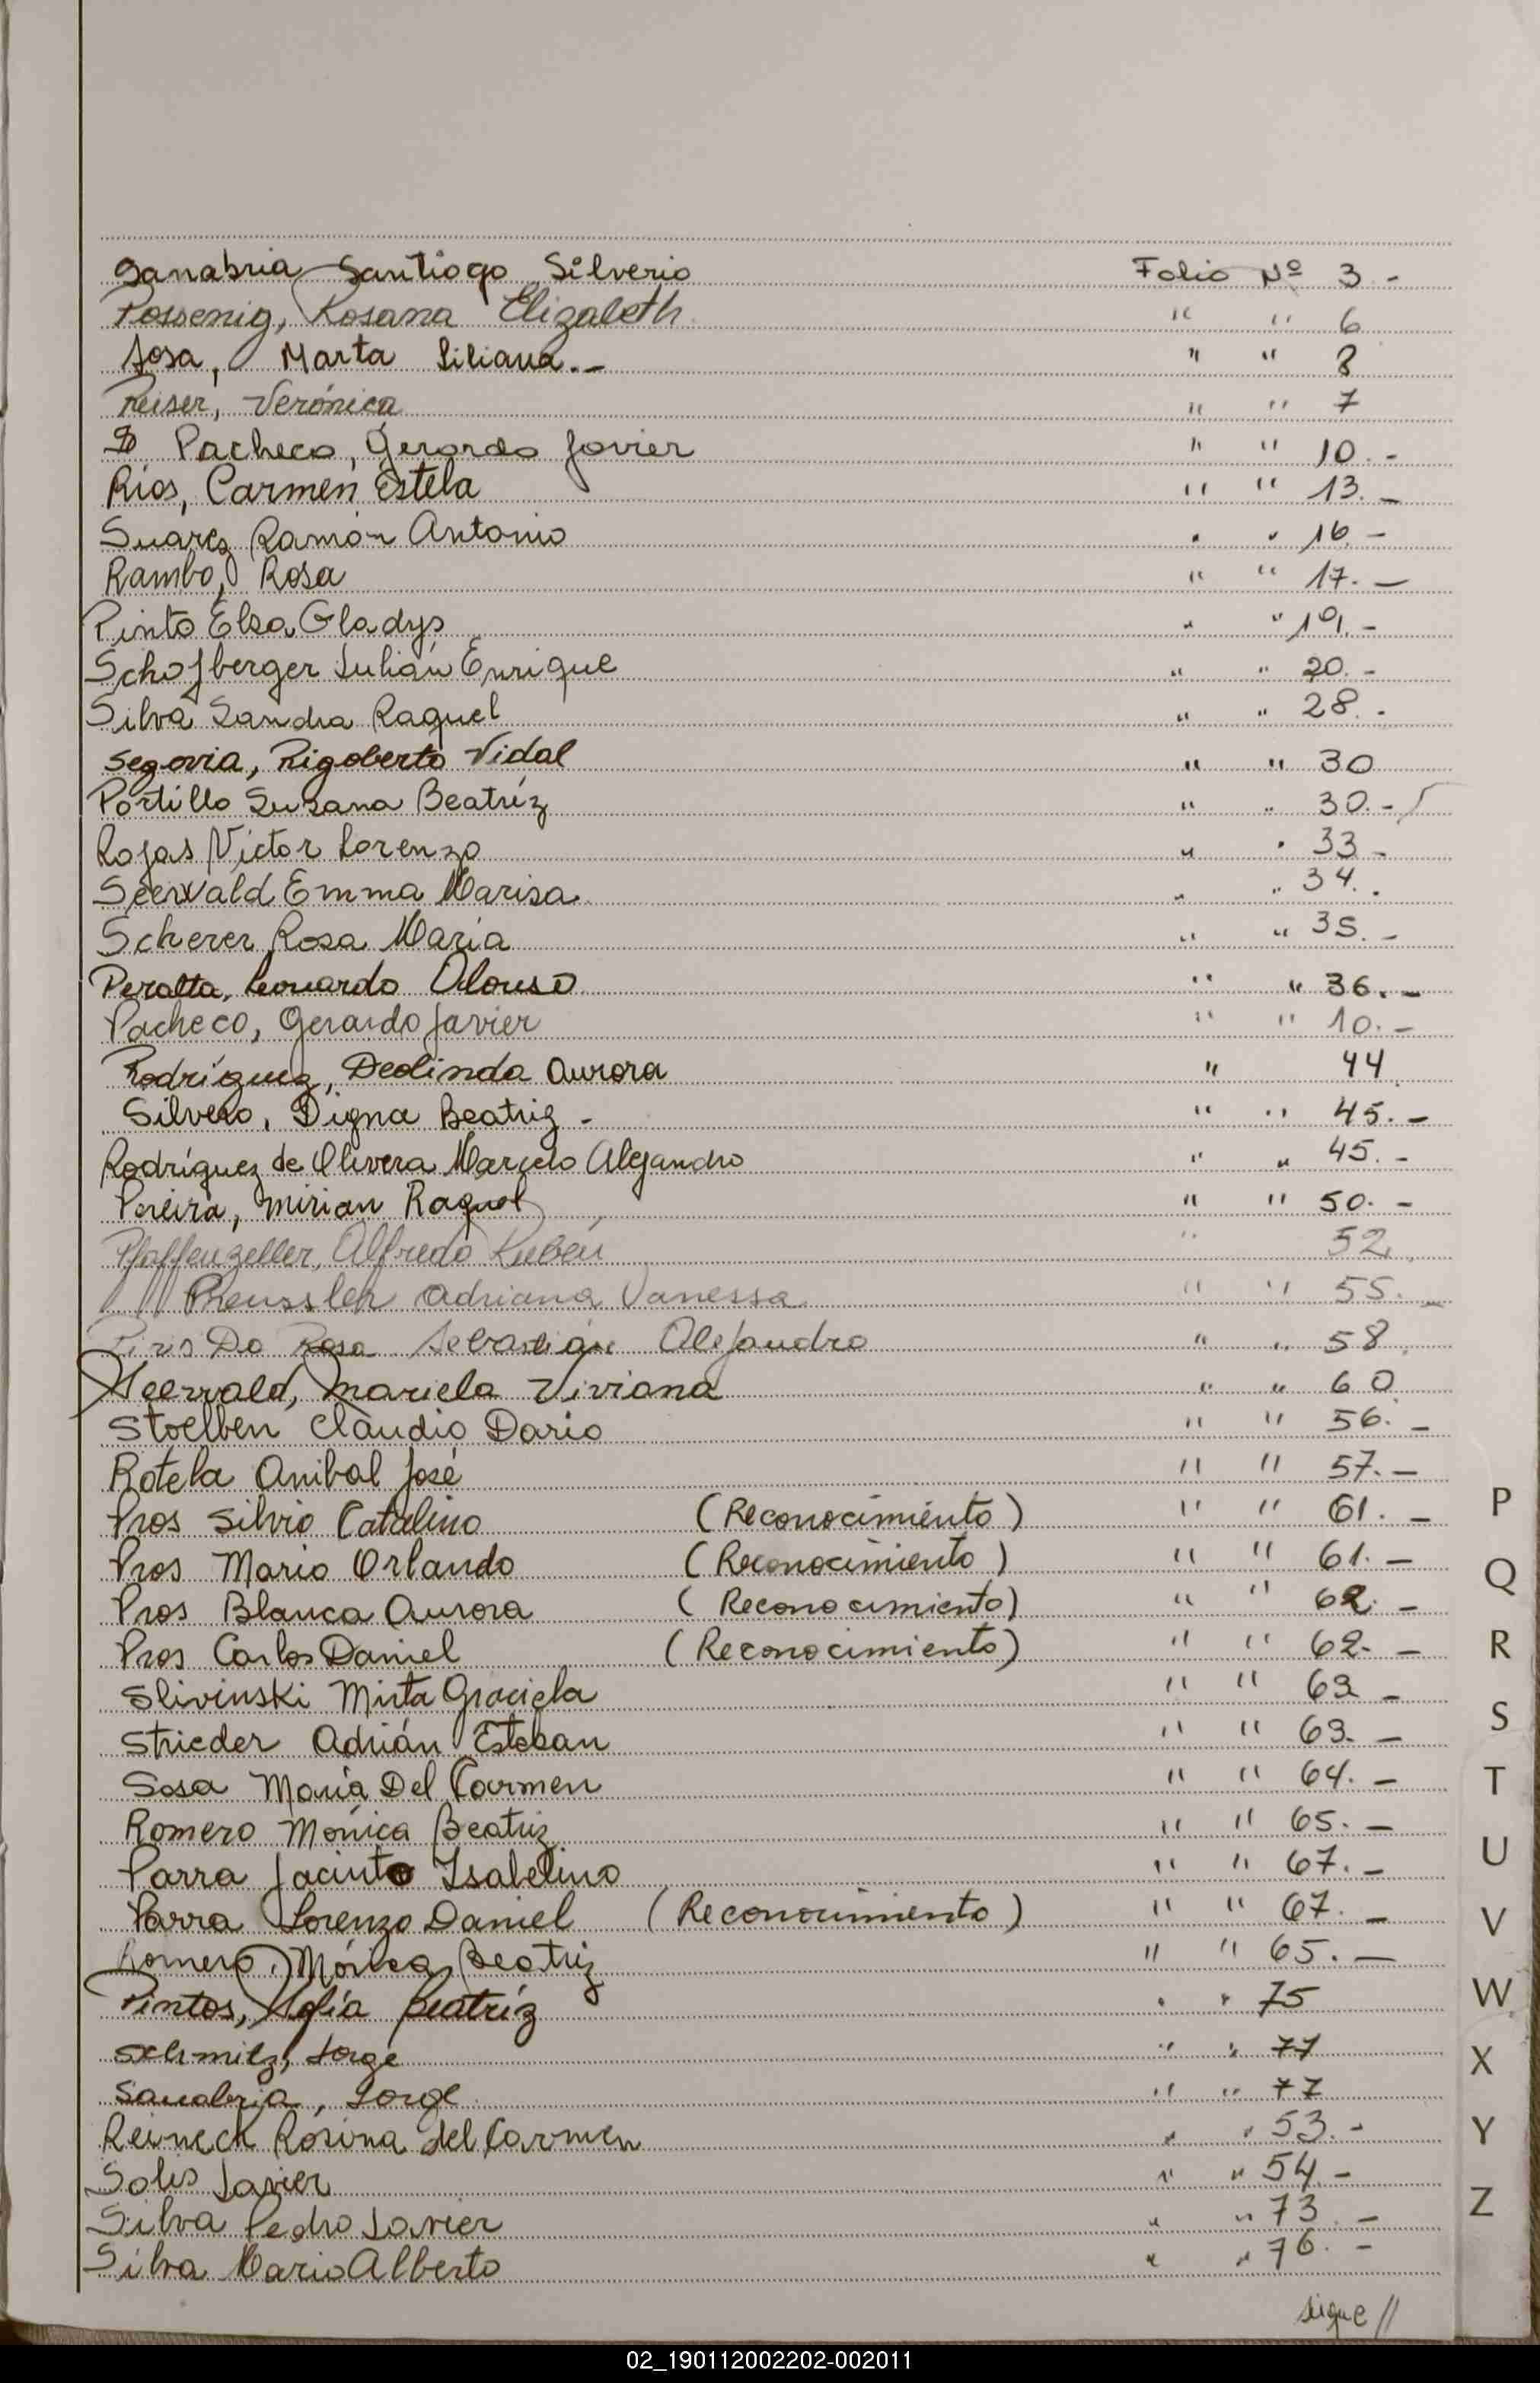 Sanabria Santiago Silverio Folio Nº 3.-
Possenig, Rosana Elizabeth " " 6
Sosa, Marta Liliana.- " " 8
Reiser, Verónica " " 7
Pacheco, Gerardo Javier " " 10.-
Ríos, Carmen Estela " " 13.-
Suarez Ramón Antonio " " 16.-
Rambo, Rosa " " 17.-
Pinto Elsa Gladys " " 19.-
Schofberger Julián Enrique " " 20.-
Silva Sandra Raquel " " 28.-
Segovia, Rigoberto Vidal " " 30
Portillo Susana Beatríz " " 30.-
Rojas Victor Lorenzo " " 33-
Seewald Emma Marisa " " 34.-
Scherer Rosa María " " 35.-
Peralta, Leonardo Alonso " " 36.-
Pacheco, Gerardo Javier " " 10.-
Rodríguez, Deolinda Aurora " 44
Silvero, Digna Beatriz - " " 45.-
Rodríguez de Olivera Marcelo Alejandro " " 45.-
Pereira, Mirian Raquel " " 50.-
Pfaffenzeller, Alfredo Rubén " 52.
Preussler Adriana Vanessa " " 55.-
Piris Da Rosa Sebastián Alejandro " " 58.
Seewald, Mariela Viviana " " 60
Stoelben Claudio Dario " " 56.-
Rotela Anibal José " " 57.-
Pros Silvio Catalino (Reconocimiento) " " 61.-
Pros Mario Orlando (Reconocimiento) " " 61.-
Pros Blanca Aurora (Reconocimiento) " " 62.-
Pros Carlos Daniel (Reconocimiento) " " 62.-
Slivinski Mirta Graciela " " 63-
Strieder Adrián Esteban " " 63.-
Sosa María Del Carmen " " 64.-
Romero Mónica Beatriz " " 65.-
Parra Jacinto Isabelino " " 67.-
Parra Lorenzo Daniel (Reconocimiento) " " 67.-
Romero, Mónica Beatriz " " 65.-
Pintos, Sofía Beatríz " " 75
Schmitz, Jorge " " 77
Sanabria, Jorge " " 77
Reineck Rosina del Carmen " " 53.-
Solis Javier " " 54.-
Silva Pedro Javier " " 73.-
Silva Mario Alberto " " 76.-
sigue //
P
Q
R
S
T
U
V
W
X
Y
Z
02_190112002202-002011